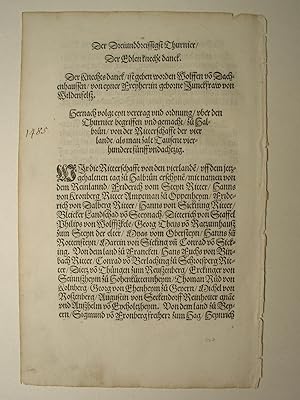 Der Dreiunddreissigst Thurnier/
Der Edlen knecht danck.
Der Knechts danck / ist geben worden Wolffen vō Dach-
enhaussen / von eyner Freyherrin geborne Junckfraw von
Wildenfelß.
Hernach volgt eyn vertrag vnd ordnung / vber den
Thurnier begriffen vnd gemacht / zů Hal-
brůn / von der Ritterschafft der vier
lande / als man zalt Tausent vier-
hundert fünff vnd achtzig.
1485
WIr die Ritterschafft von den vier lande / vff dem jetz-
gehaltenen tag zů Halbrůn erschynē / mit namen von
dem Reinlannd / Friderich vom Steyn Ritter / Hanns
von Kronberg Ritter Amptman zů Oppenheym / Fride-
rich von Dalberg Ritter / Hanns von Sickning Ritter /
Blicker Landschad vō Steynach / Dietterich von Staffel
Philips von Wolffskele / Georg
zum Steyn der elter / vom Obersteyn / Hanns zů
Rotenstein / Martin von Sicking vn̄ Conrad vō Sick-
ing. Von dem land zů Francken / Hans Fuchs von Bin-
bach Ritter / Conrad vō Berlaching zů Schrosperg Rit-
ter / Dietz vō Thüngen zum Reussenberg / Erckinger von
Seinnßheym zů Hohenkottennheym / Thoman Rüd von
Kolnberg / Georg von Ehenheym zů Geyern / Michel von
Rosenberg / Augustin von Seckendorff Reinhoffer gnāt
vnd Anßhelm vō Eycholtzheym. Von dem land zů Bey-
ern / Sigmund vō Fronberg freiherr zum Hag / Heynrich